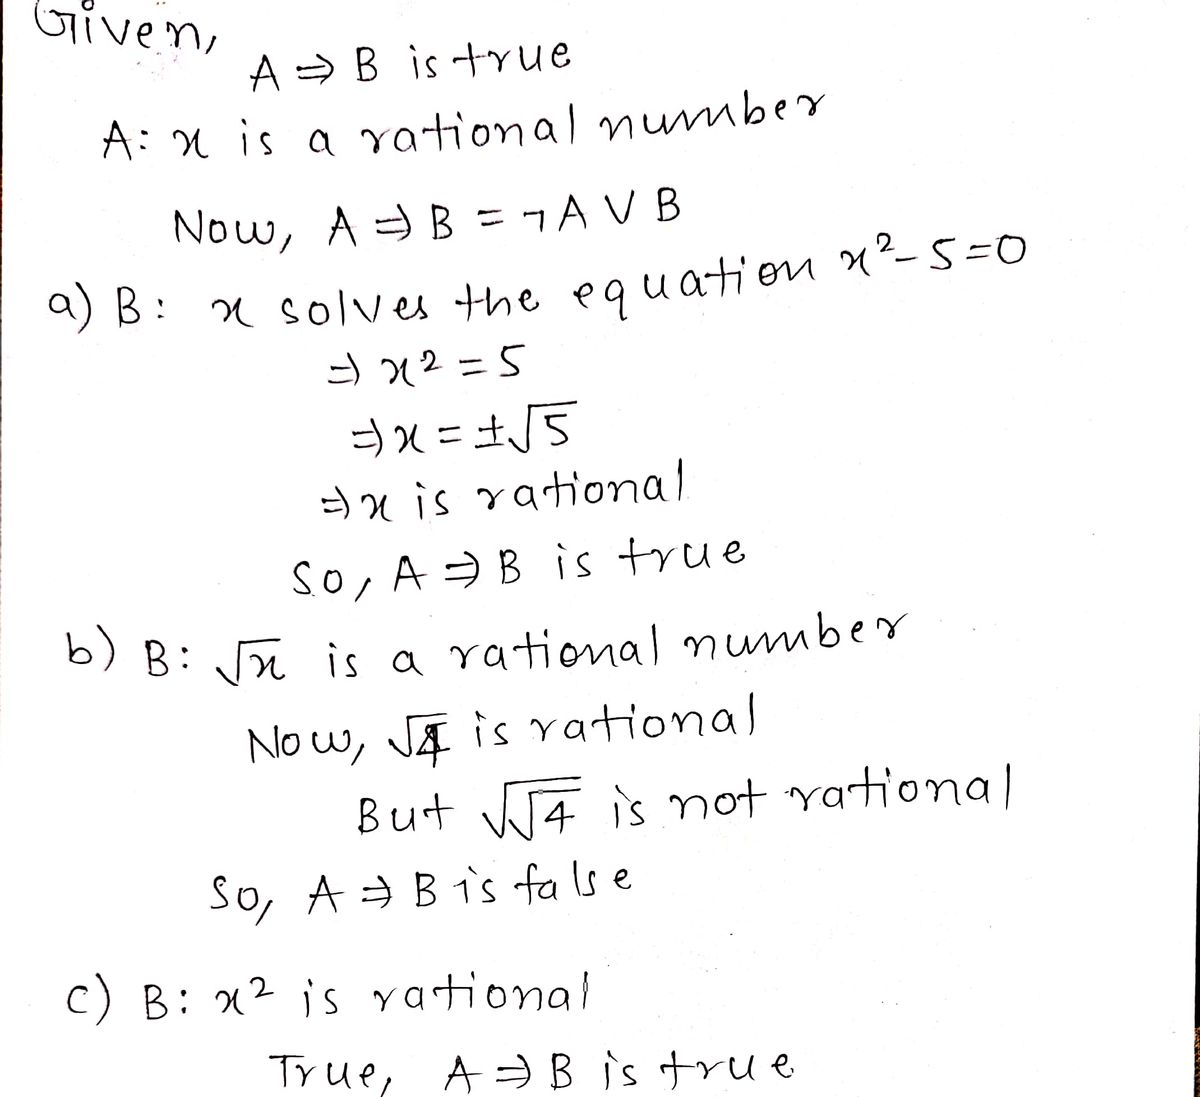 Given,
A ⇒ B is true
A: x is a rational number
Now, A ⇒ B = ¬A ∨ B
a) B: x solves the equation x²-5=0
⇒ x² = 5
⇒ x = ±√5
⇒ x is rational
So, A ⇒ B is true
b) B: √x is a rational number
Now, √4 is rational
But √√4 is not rational
So, A ⇒ B is false
c) B: x² is rational
True, A ⇒ B is true